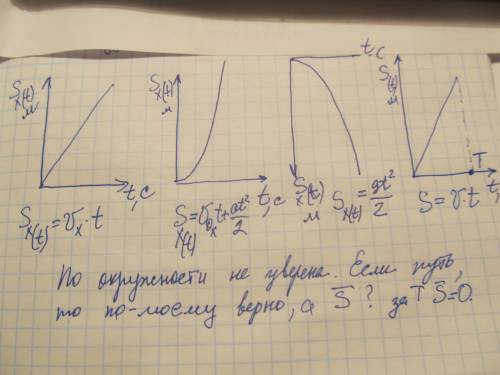 Sx(t) м
t, c
Sx(t) = υx · t
Sx(t) м
t, c
Sx(t) = υ0x t + at²/2
t, c
Sx(t) м
Sx(t) = gt²/2
S(t) м
T
t,
S = υ · t
По окружности не уверена. Если путь,
то по-моему верно, а S̄ ? за T S̄=0.